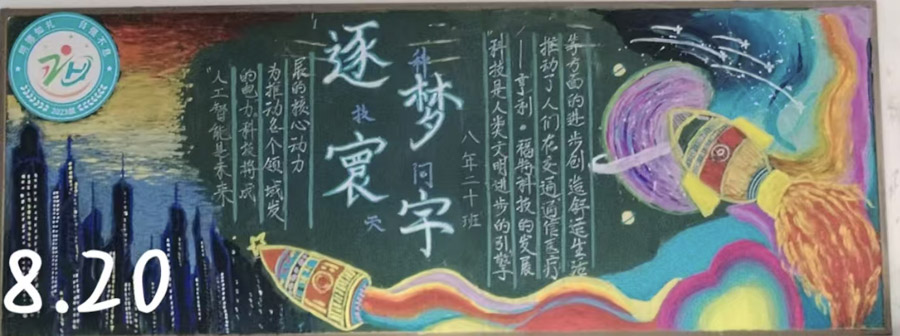 人工智能是未来
的电力科技将成
为推动各个领域发
展的核心动力
逐梦寰宇
科技同天
八年二十班
科技是人类文明进步的引擎
——亨利·福特科技的发展
推动了人们在交通通信医疗
等方面的进步创造舒适生活
8.20